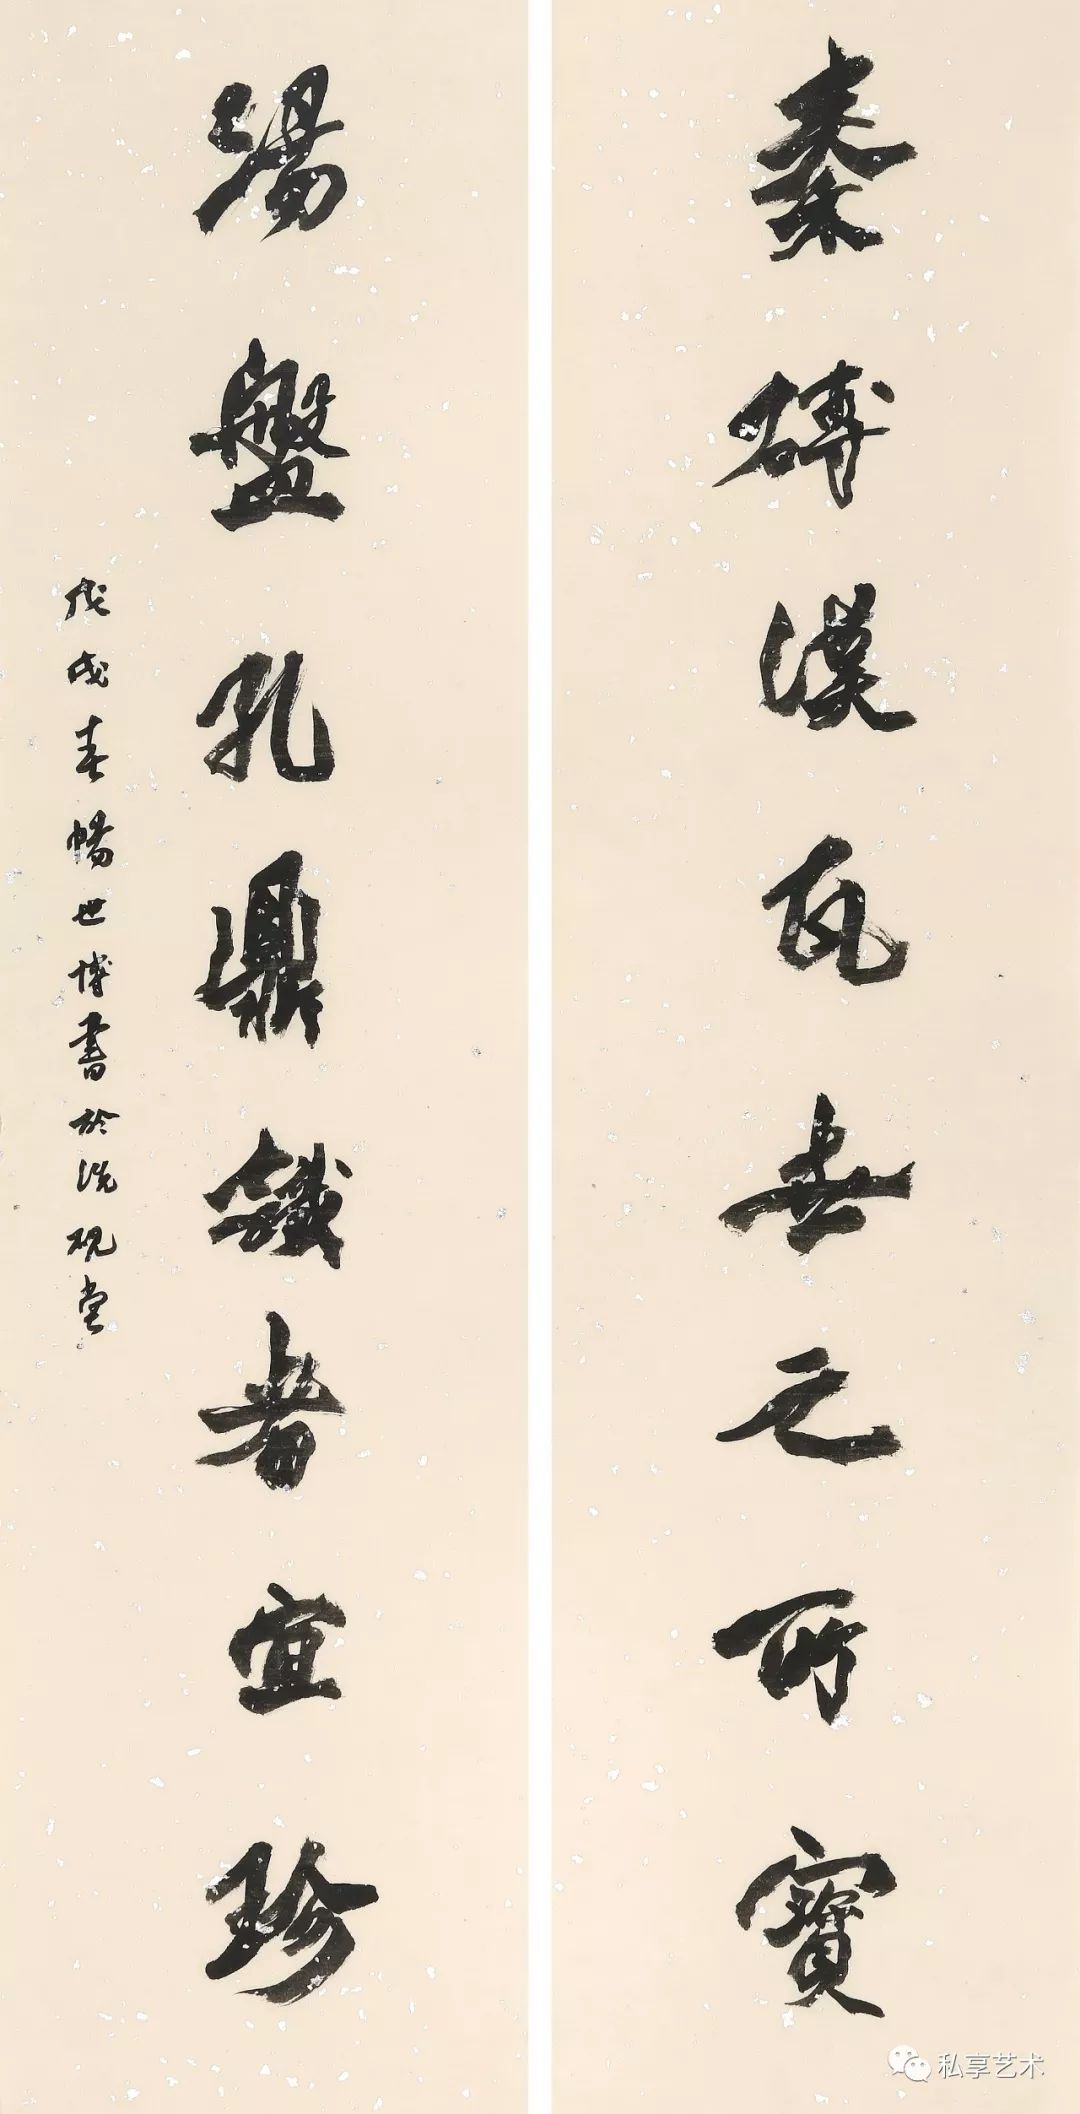 秦磚漢瓦世之所寶
湯盤孔鼎識者宜珍
戊戌春暢世博書於洗硯堂
私享艺术